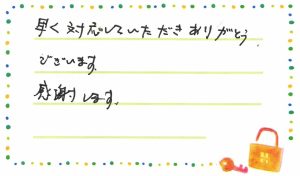 早く対応していただきありがとう
ございます。
感謝します。